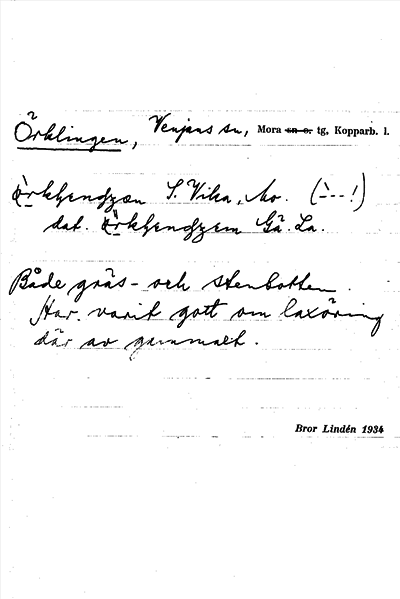 Örklingen, Venjans sn, Mora sn o. tg, Kopparb. l.
S. Vika, Mo. (–̀ – – !)
dat. Gä. La.
Både gräs- och stenbotten.
Har varit gott om laxöring
där av gammalt.
Bror Lindén 1934